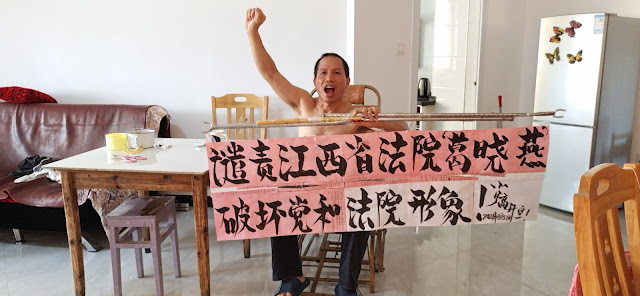 谴责江西省法院葛晓燕
破坏党和法院形象